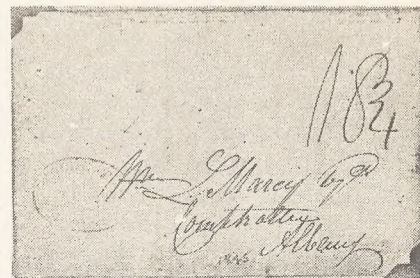 18 3/4
Wm L. Marcy Esqr
Comptroller
Albany